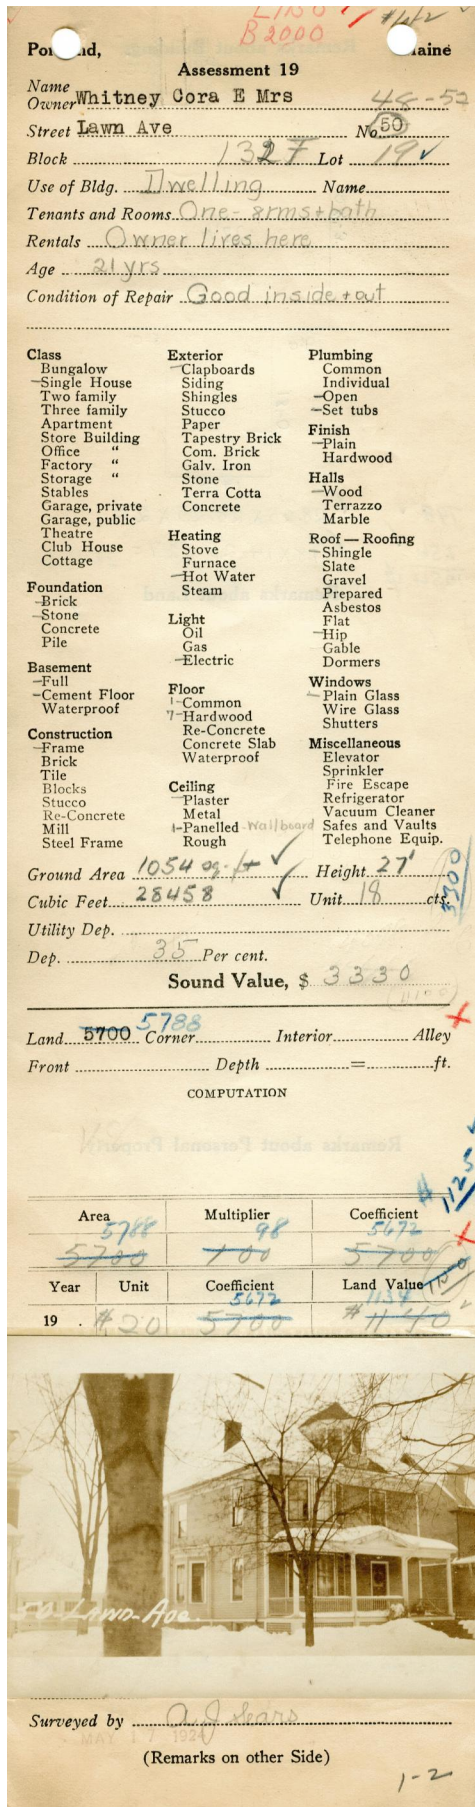 LAND
B 2000
Portland, Maine
Assessment 19
Name
Owner Whitney Cora E Mrs 48-52
Street Lawn Ave No. 50
Block 132 F Lot 19 ✓
Use of Bldg. Dwelling Name
Tenants and Rooms One - 8rms + bath
Rentals Owner lives here
Age 21 yrs
Condition of Repair Good inside + out
Class
Bungalow
Single House
Two family
Three family
Apartment
Store Building
Office "
Factory "
Storage "
Stables
Garage, private
Garage, public
Theatre
Club House
Cottage
Foundation
Brick
Stone
Concrete
Pile
Basement
Full
Cement Floor
Waterproof
Construction
Frame
Brick
Tile
Blocks
Stucco
Re-Concrete
Mill
Steel Frame
Exterior
Clapboards
Siding
Shingles
Stucco
Paper
Tapestry Brick
Com. Brick
Galv. Iron
Stone
Terra Cotta
Concrete
Heating
Stove
Furnace
Hot Water
Steam
Light
Oil
Gas
Electric
Floor
1 - Common
7 - Hardwood
Re-Concrete
Concrete Slab
Waterproof
Ceiling
Plaster
Metal
1 - Panelled - Wallboard
Rough
Plumbing
Common
Individual
Open
Set tubs
Finish
Plain
Hardwood
Halls
Wood
Terrazzo
Marble
Roof — Roofing
Shingle
Slate
Gravel
Prepared
Asbestos
Flat
Hip
Gable
Dormers
Windows
Plain Glass
Wire Glass
Shutters
Miscellaneous
Elevator
Sprinkler
Fire Escape
Refrigerator
Vacuum Cleaner
Safes and Vaults
Telephone Equip.
Ground Area 1054 sq. ft ✓ Height 27'
Cubic Feet 28458 ✓ Unit 18 cts.
3300
Utility Dep.
Dep. 35 Per cent.
Sound Value, $ 3330
Land 5700 5788 Corner Interior Alley
Front Depth = ft.
COMPUTATION
$ 1125
Area Multiplier Coefficient
5788 98 5672
5700 100 5700
Year Unit Coefficient Land Value 1150
5672 1134
19 . # 20 5700 # 1140
50-LAWN-Ave.
Surveyed by A J Sears
MAY 17 1924
(Remarks on other Side)
1-2